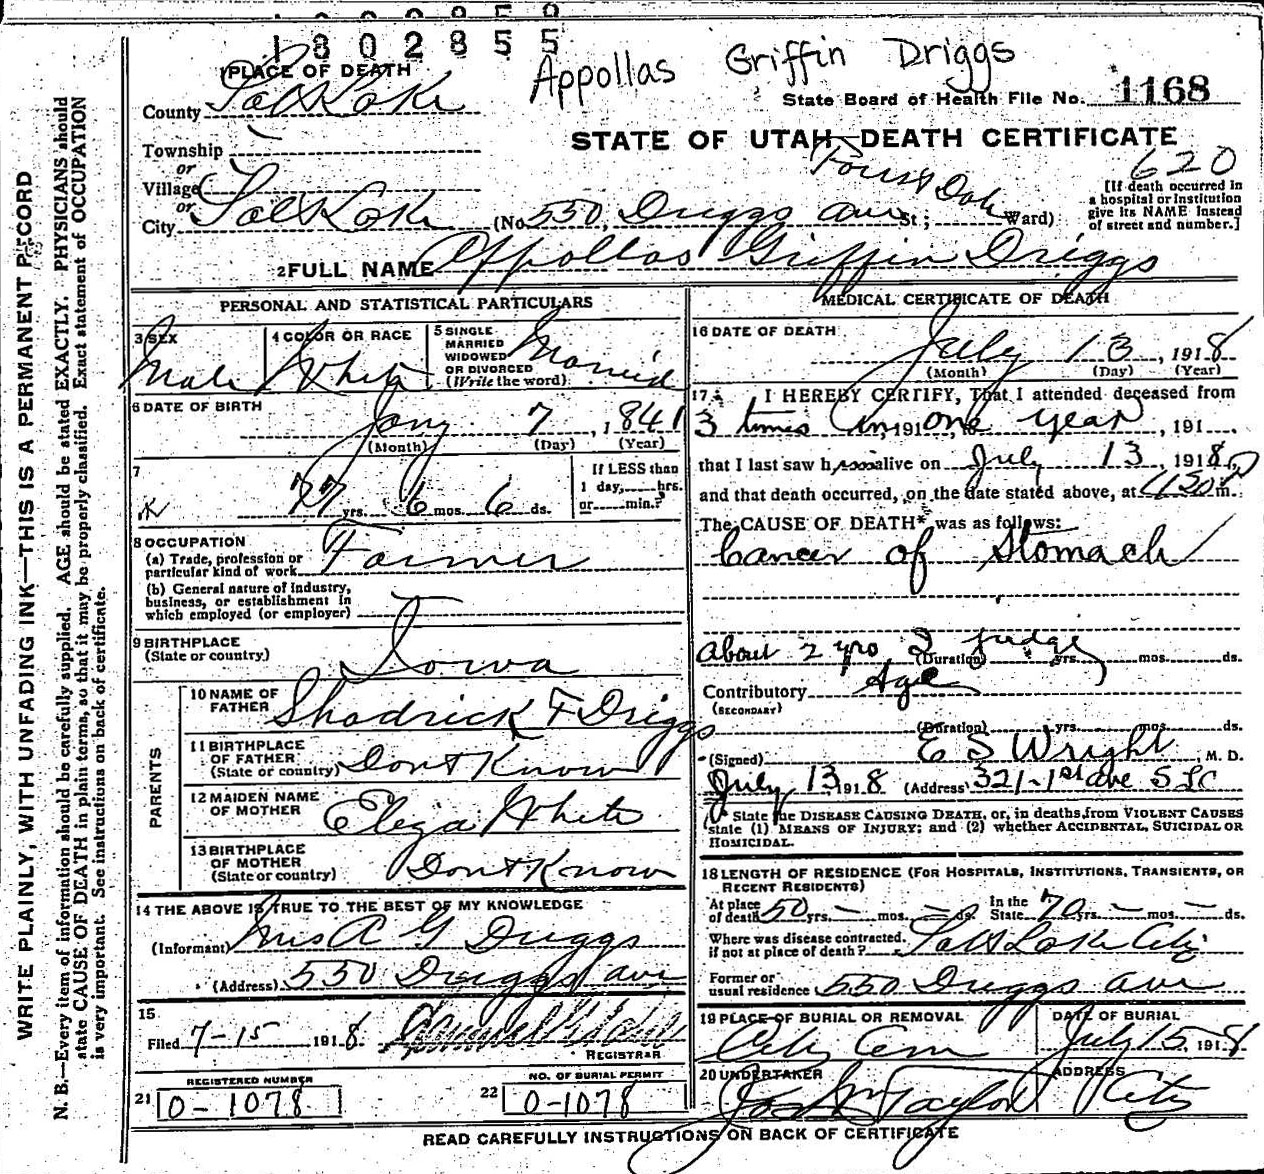 1802855
Appollas Griffin Driggs
PLACE OF DEATH
State Board of Health File No. 1168
County Salt Lake
STATE OF UTAH—DEATH CERTIFICATE
Township
or
Village
or
620
[If death occurred in
a hospital or institution
give its NAME instead
of street and number.]
Forest Dale
City Salt Lake (No. 550, Driggs ave St; Ward)
2 FULL NAME Appollas Griffin Driggs
PERSONAL AND STATISTICAL PARTICULARS
3 SEX Male
4 COLOR OR RACE White
5 SINGLE
MARRIED
WIDOWED
OR DIVORCED
(Write the word) Married
6 DATE OF BIRTH
Jany 7, 1841
(Month) (Day) (Year)
7
77 yrs. 6 mos. 6 ds.
If LESS than
1 day, hrs.
or min.?
8 OCCUPATION
(a) Trade, profession or
particular kind of work Farmer
(b) General nature of industry,
business, or establishment in
which employed (or employer)
9 BIRTHPLACE
(State or country) Iowa
PARENTS
10 NAME OF
FATHER Shadrick F Driggs
11 BIRTHPLACE
OF FATHER
(State or country) Dont Know
12 MAIDEN NAME
OF MOTHER Eliza White
13 BIRTHPLACE
OF MOTHER
(State or country) Dont Know
14 THE ABOVE IS TRUE TO THE BEST OF MY KNOWLEDGE
(Informant) Mrs A G Driggs
(Address) 550 Driggs ave
15
Filed 7-15 1918
REGISTRAR
REGISTERED NUMBER
21 0-1078
NO. OF BURIAL PERMIT
22 0-1078
MEDICAL CERTIFICATE OF DEATH
16 DATE OF DEATH
July 13, 1918
(Month) (Day) (Year)
17 I HEREBY CERTIFY, That I attended deceased from
3 times in, 191 one year, 191
that I last saw h alive on July 13, 1918,
and that death occurred, on the date stated above, at 430 P m.
The CAUSE OF DEATH* was as follows:
Cancer of Stomach
About 2 yrs I judge
(Duration) yrs. mos. ds.
Contributory Age
(SECONDARY)
(Duration) yrs. mos. ds.
(Signed) E S Wright M. D.
July 13 1918 (Address) 321-1st ave S L C
* State the DISEASE CAUSING DEATH, or, in deaths from VIOLENT CAUSES
state (1) MEANS OF INJURY; and (2) whether ACCIDENTAL, SUICIDAL OR
HOMICIDAL.
18 LENGTH OF RESIDENCE (FOR HOSPITALS, INSTITUTIONS, TRANSIENTS, OR
RECENT RESIDENTS)
At place
of death 50 yrs. — mos. — ds. In the
State 70 yrs. — mos. — ds.
Where was disease contracted,
if not at place of death? Salt Lake City
Former or
usual residence 550 Driggs ave
19 PLACE OF BURIAL OR REMOVAL
City Cem
DATE OF BURIAL
July 15, 1918
20 UNDERTAKER
Jos Wm Taylor
ADDRESS
City
READ CAREFULLY INSTRUCTIONS ON BACK OF CERTIFICATE
WRITE PLAINLY, WITH UNFADING INK—THIS IS A PERMANENT RECORD
N. B.—Every item of information should be carefully supplied. AGE should be stated EXACTLY. PHYSICIANS should
state CAUSE OF DEATH in plain terms, so that it may be properly classified. Exact statement of OCCUPATION
is very important. See instructions on back of certificate.